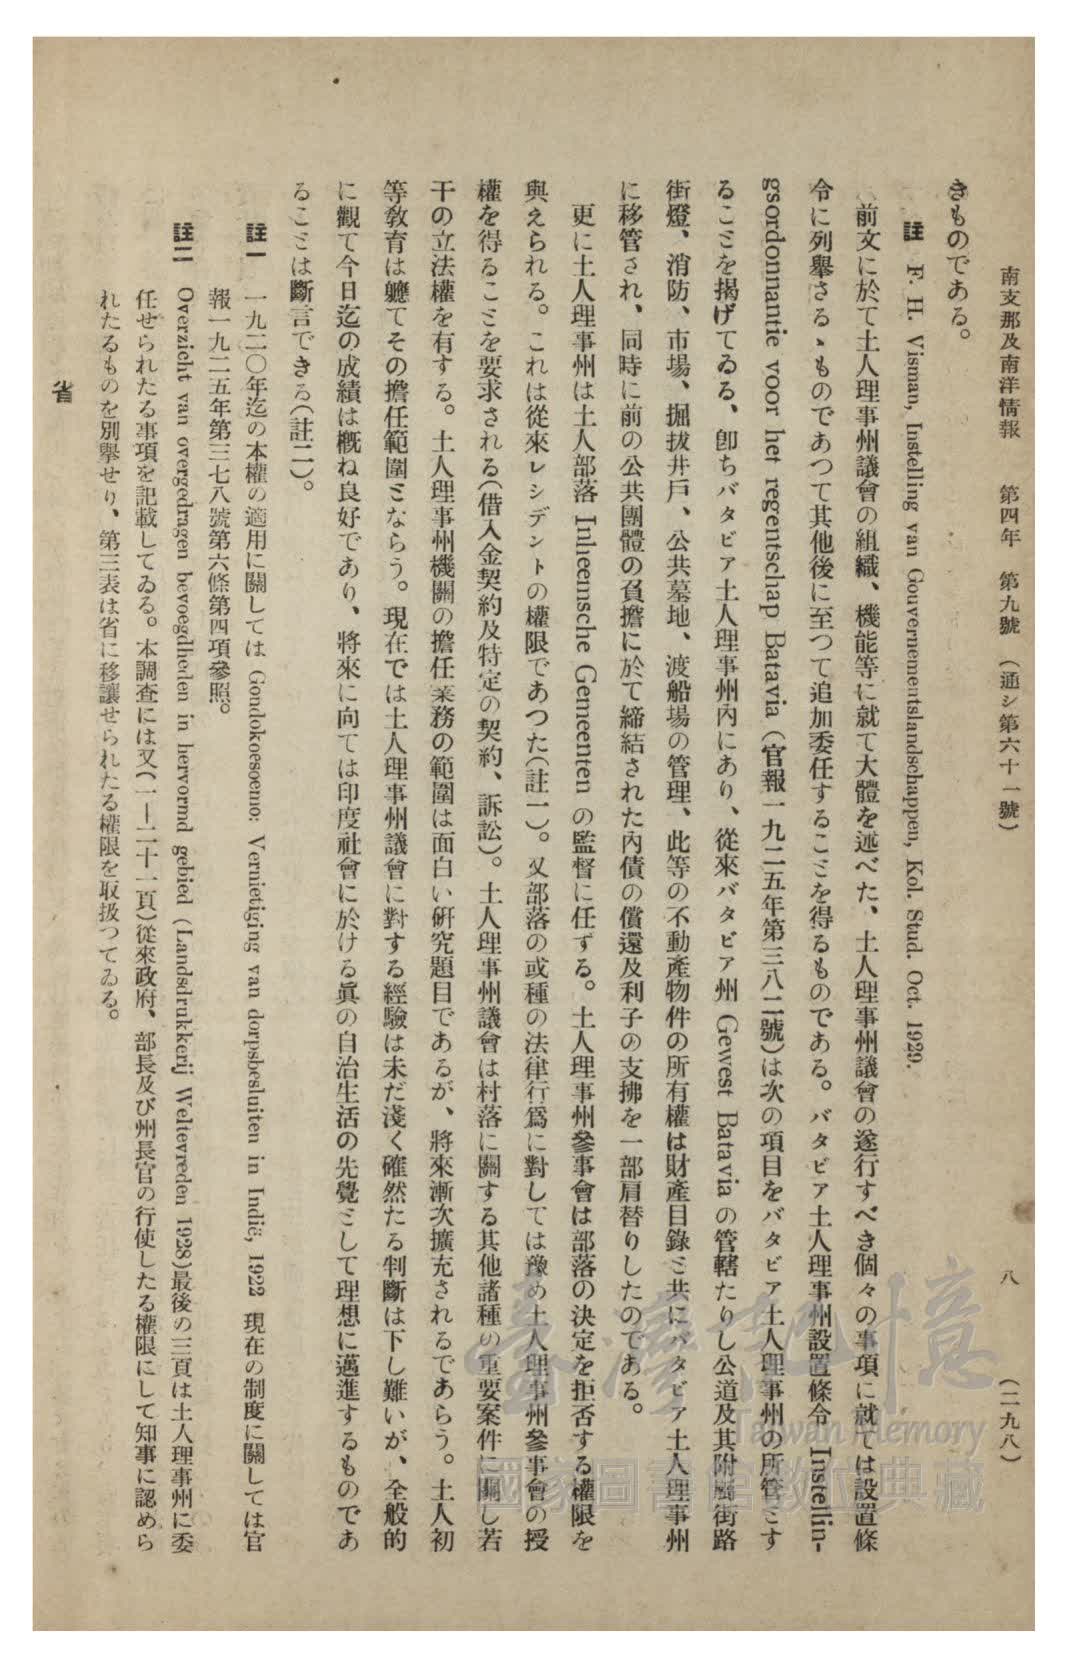 南支那及南洋情報　第四年　第九號　（通シ第六十一號）　八　（二九八）
きものである。
註　F. H. Visman, Instelling van Gouvernementslandschappen, Kol. Stud. Oct. 1929.
前文に於て土人理事州議會の組織、機能等に就て大體を述べた、土人理事州議會の遂行すべき個々の事項に就ては設置條
令に列擧さるゝものであつて其他後に至つて追加委任することを得るものである。バタビア土人理事州設置條令 Instellin-
gsordonnantie voor het regentschap Batavia（官報一九二五年第三八二號）は次の項目をバタビア土人理事州の所管とす
ることを揭げてゐる、卽ちバタビア土人理事州內にあり、從來バタビア州 Gewest Batavia の管轄たりし公道及其附屬街路
街燈、消防、市場、掘拔井戶、公共墓地、渡船場の管理、此等の不動產物件の所有權は財產目錄と共にバタビア土人理事州
に移管され、同時に前の公共團體の負擔に於て締結された內債の償還及利子の支拂を一部肩替りしたのである。
更に土人理事州は土人部落 Inheemsche Gemeenten の監督に任ずる。土人理事州參事會は部落の決定を拒否する權限を
與えられる。これは從來レシデントの權限であつた（註一）。又部落の或種の法律行爲に對しては豫め土人理事州參事會の授
權を得ることを要求される（借入金契約及特定の契約、訴訟）。土人理事州議會は村落に關する其他諸種の重要案件に關し若
干の立法權を有する。土人理事州機關の擔任業務の範圍は面白い硏究題目であるが、將來漸次擴充されるであらう。土人初
等敎育は軈てその擔任範圍とならう。現在では土人理事州議會に對する經驗は未だ淺く確然たる判斷は下し難いが、全般的
に觀て今日迄の成績は槪ね良好であり、將來に向ては印度社會に於ける眞の自治生活の先覺として理想に邁進するものであ
ることは斷言できる（註二）。
註一　一九二〇年迄の本權の適用に關しては Gondokoesoemo: Vernietiging van dorpsbesluiten in Indië, 1922 現在の制度に關しては官
報一九二五年第三七八號第六條第四項參照。
註二　Overzicht van overgedragen bevoegdheden in hervormd gebied (Landsdrukkerij Weltevreden 1928)最後の三頁は土人理事州に委
任せられたる事項を記載してゐる。本調查には又（一―二十一頁）從來政府、部長及び州長官の行使したる權限にして知事に認めら
れたるものを別擧せり、第三表は省に移讓せられたる權限を取扱つてゐる。
省
臺灣記憶
Taiwan Memory
國家圖書館數位典藏